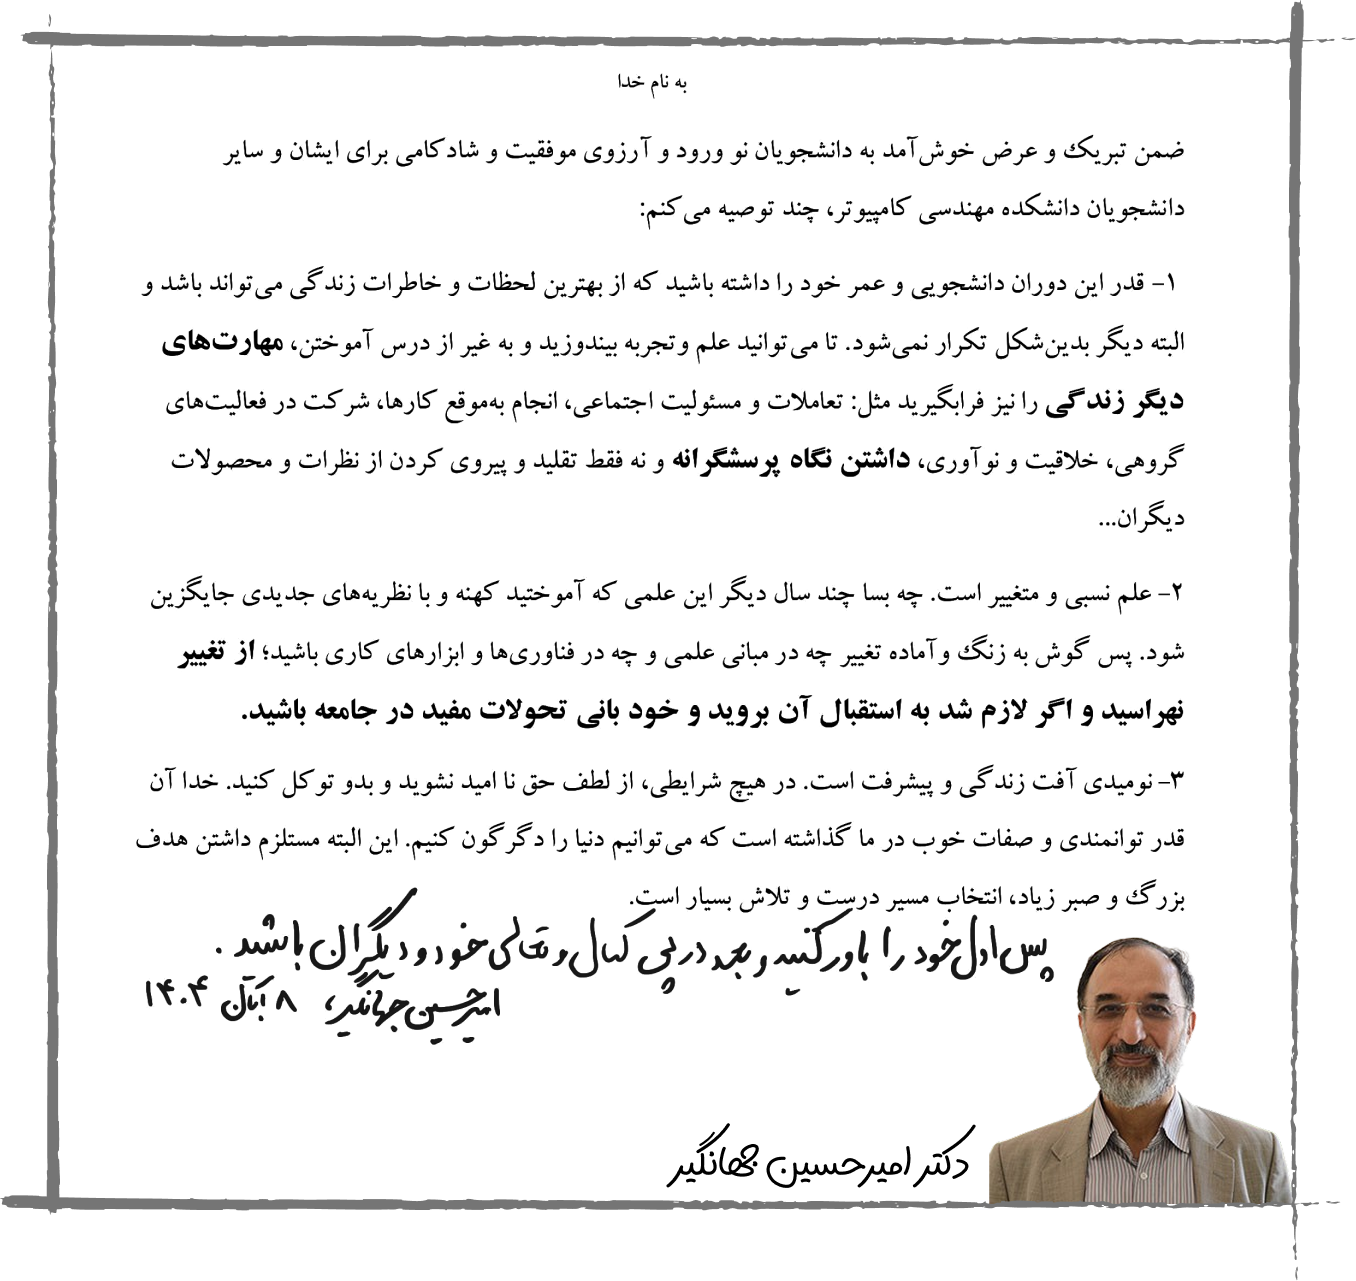 به نام خدا
ضمن تبریک و عرض خوش‌آمد به دانشجویان نو ورود و آرزوی موفقیت و شادکامی برای ایشان و سایر
دانشجویان دانشکده مهندسی کامپیوتر، چند توصیه می‌کنم:
۱- قدر این دوران دانشجویی و عمر خود را داشته باشید که از بهترین لحظات و خاطرات زندگی می‌تواند باشد و
البته دیگر بدین‌شکل تکرار نمی‌شود. تا می‌توانید علم و تجربه بیندوزید و به غیر از درس آموختن، مهارت‌های
دیگر زندگی را نیز فرابگیرید مثل: تعاملات و مسئولیت اجتماعی، انجام به‌موقع کارها، شرکت در فعالیت‌های
گروهی، خلاقیت و نوآوری، داشتن نگاه پرسشگرانه و نه فقط تقلید و پیروی کردن از نظرات و محصولات
دیگران...
۲- علم نسبی و متغییر است. چه بسا چند سال دیگر این علمی که آموختید کهنه و با نظریه‌های جدیدی جایگزین
شود. پس گوش به زنگ و آماده تغییر چه در مبانی علمی و چه در فناوری‌ها و ابزارهای کاری باشید؛ از تغییر
نهراسید و اگر لازم شد به استقبال آن بروید و خود بانی تحولات مفید در جامعه باشید.
۳- نومیدی آفت زندگی و پیشرفت است. در هیچ شرایطی، از لطف حق نا امید نشوید و بدو توکل کنید. خدا آن
قدر توانمندی و صفات خوب در ما گذاشته است که می‌توانیم دنیا را دگرگون کنیم. این البته مستلزم داشتن هدف
بزرگ و صبر زیاد، انتخاب مسیر درست و تلاش بسیار است.
پس اول خود را باور کنید و بعد در پی کمال و تعالی خود و دیگران باشید.
امیرحسین جهانگیر، ۸ آبان ۱۴۰۴
دکتر امیرحسین جهانگیر